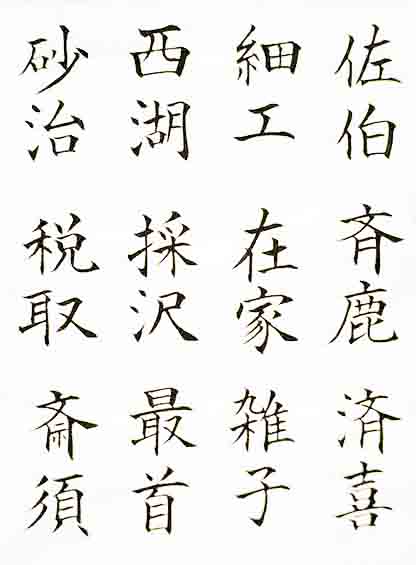 佐伯
細工
西湖
砂治
斉鹿
在家
採沢
税取
済喜
雑子
最首
斎須